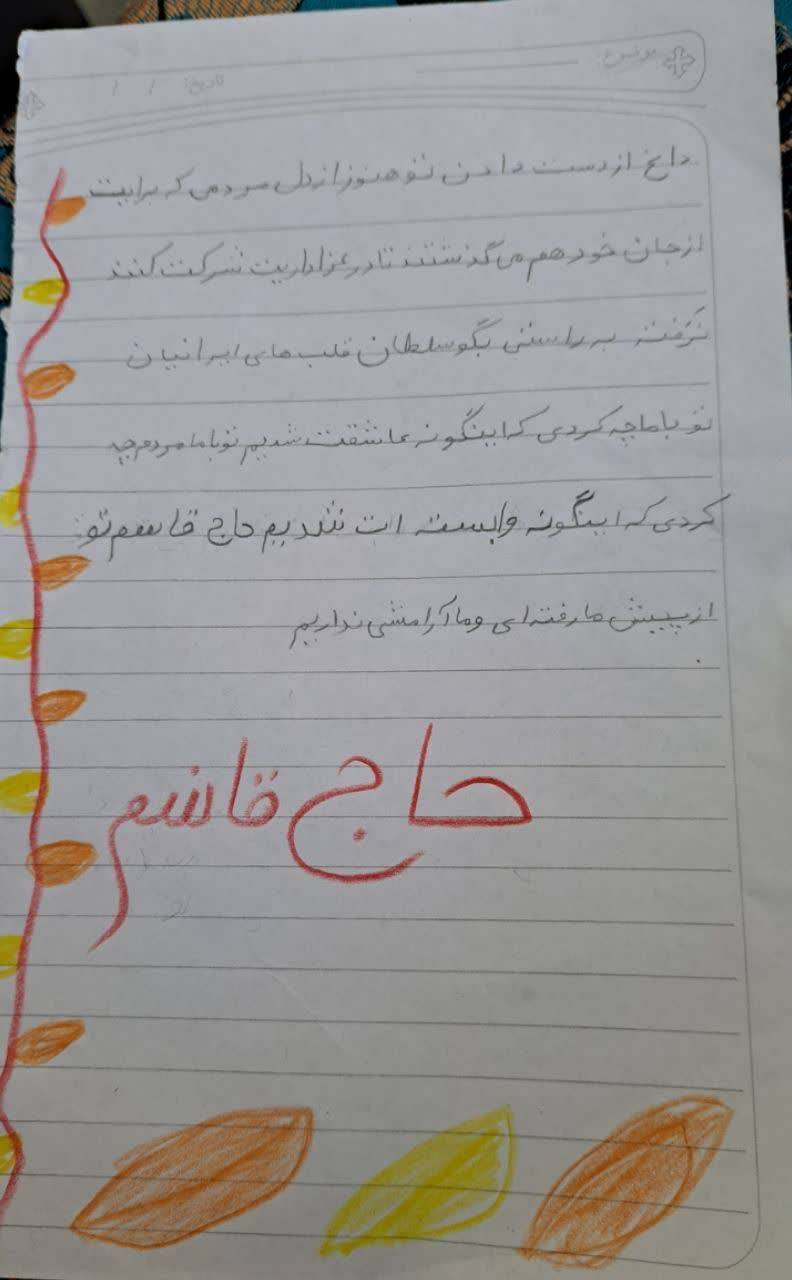 موضوع
تاریخ: / /
داغ از دست دادن تو هنوز از دل مردمی که برایت
از جان خود هم می گذشتند تا در عزاداریت شرکت کنند
نرفته به راستی بگو سلطان قلب های ایرانیان
تو با ما چه کردی که اینگونه عاشقت شدیم تو با ما مردم چه
کردی که اینگونه وابسته ات شدیم حاج قاسم تو
از پییش ما رفته ای و ما آرامشی نداریم
.
حاج قاسم